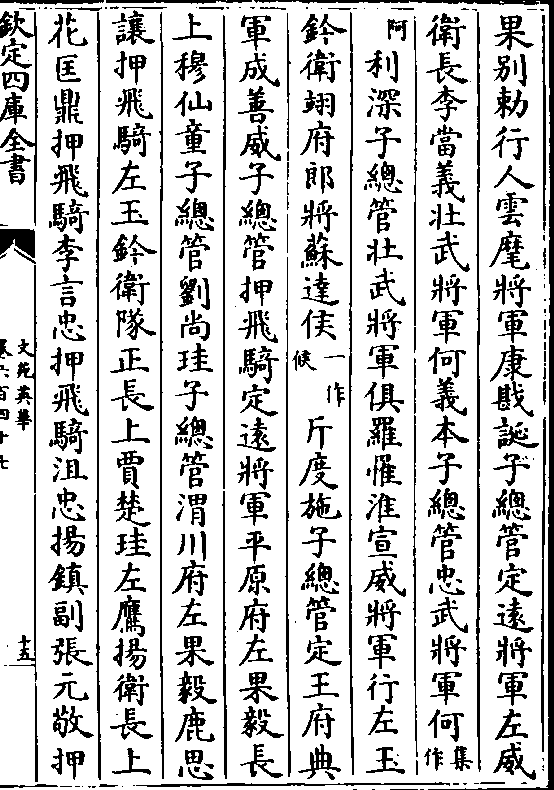 果别勅行人雲麾將軍康戡誕子總管定遠將軍左威
衛長李當義壯武將軍何義本子總管忠武將軍何集作
阿利深子總管壯武將軍俱羅惟淮宣威將軍行左玉
鈐衛翊府郎將蘇達俟一作候斤度施子總管定王府典
軍成善威子總管押飛騎定遠將軍平原府左果毅長
上穆仙童子總管劉尚珪子總管渭川府左果毅鹿思
讓押飛騎左玉鈐衛隊正長上賈楚珪左鷹揚衛長上
花匡鼎押飛騎李言忠押飛騎沮忠揚鎮副張元敬押
欽定四庫全書
文苑英華
卷六百四十七
十五